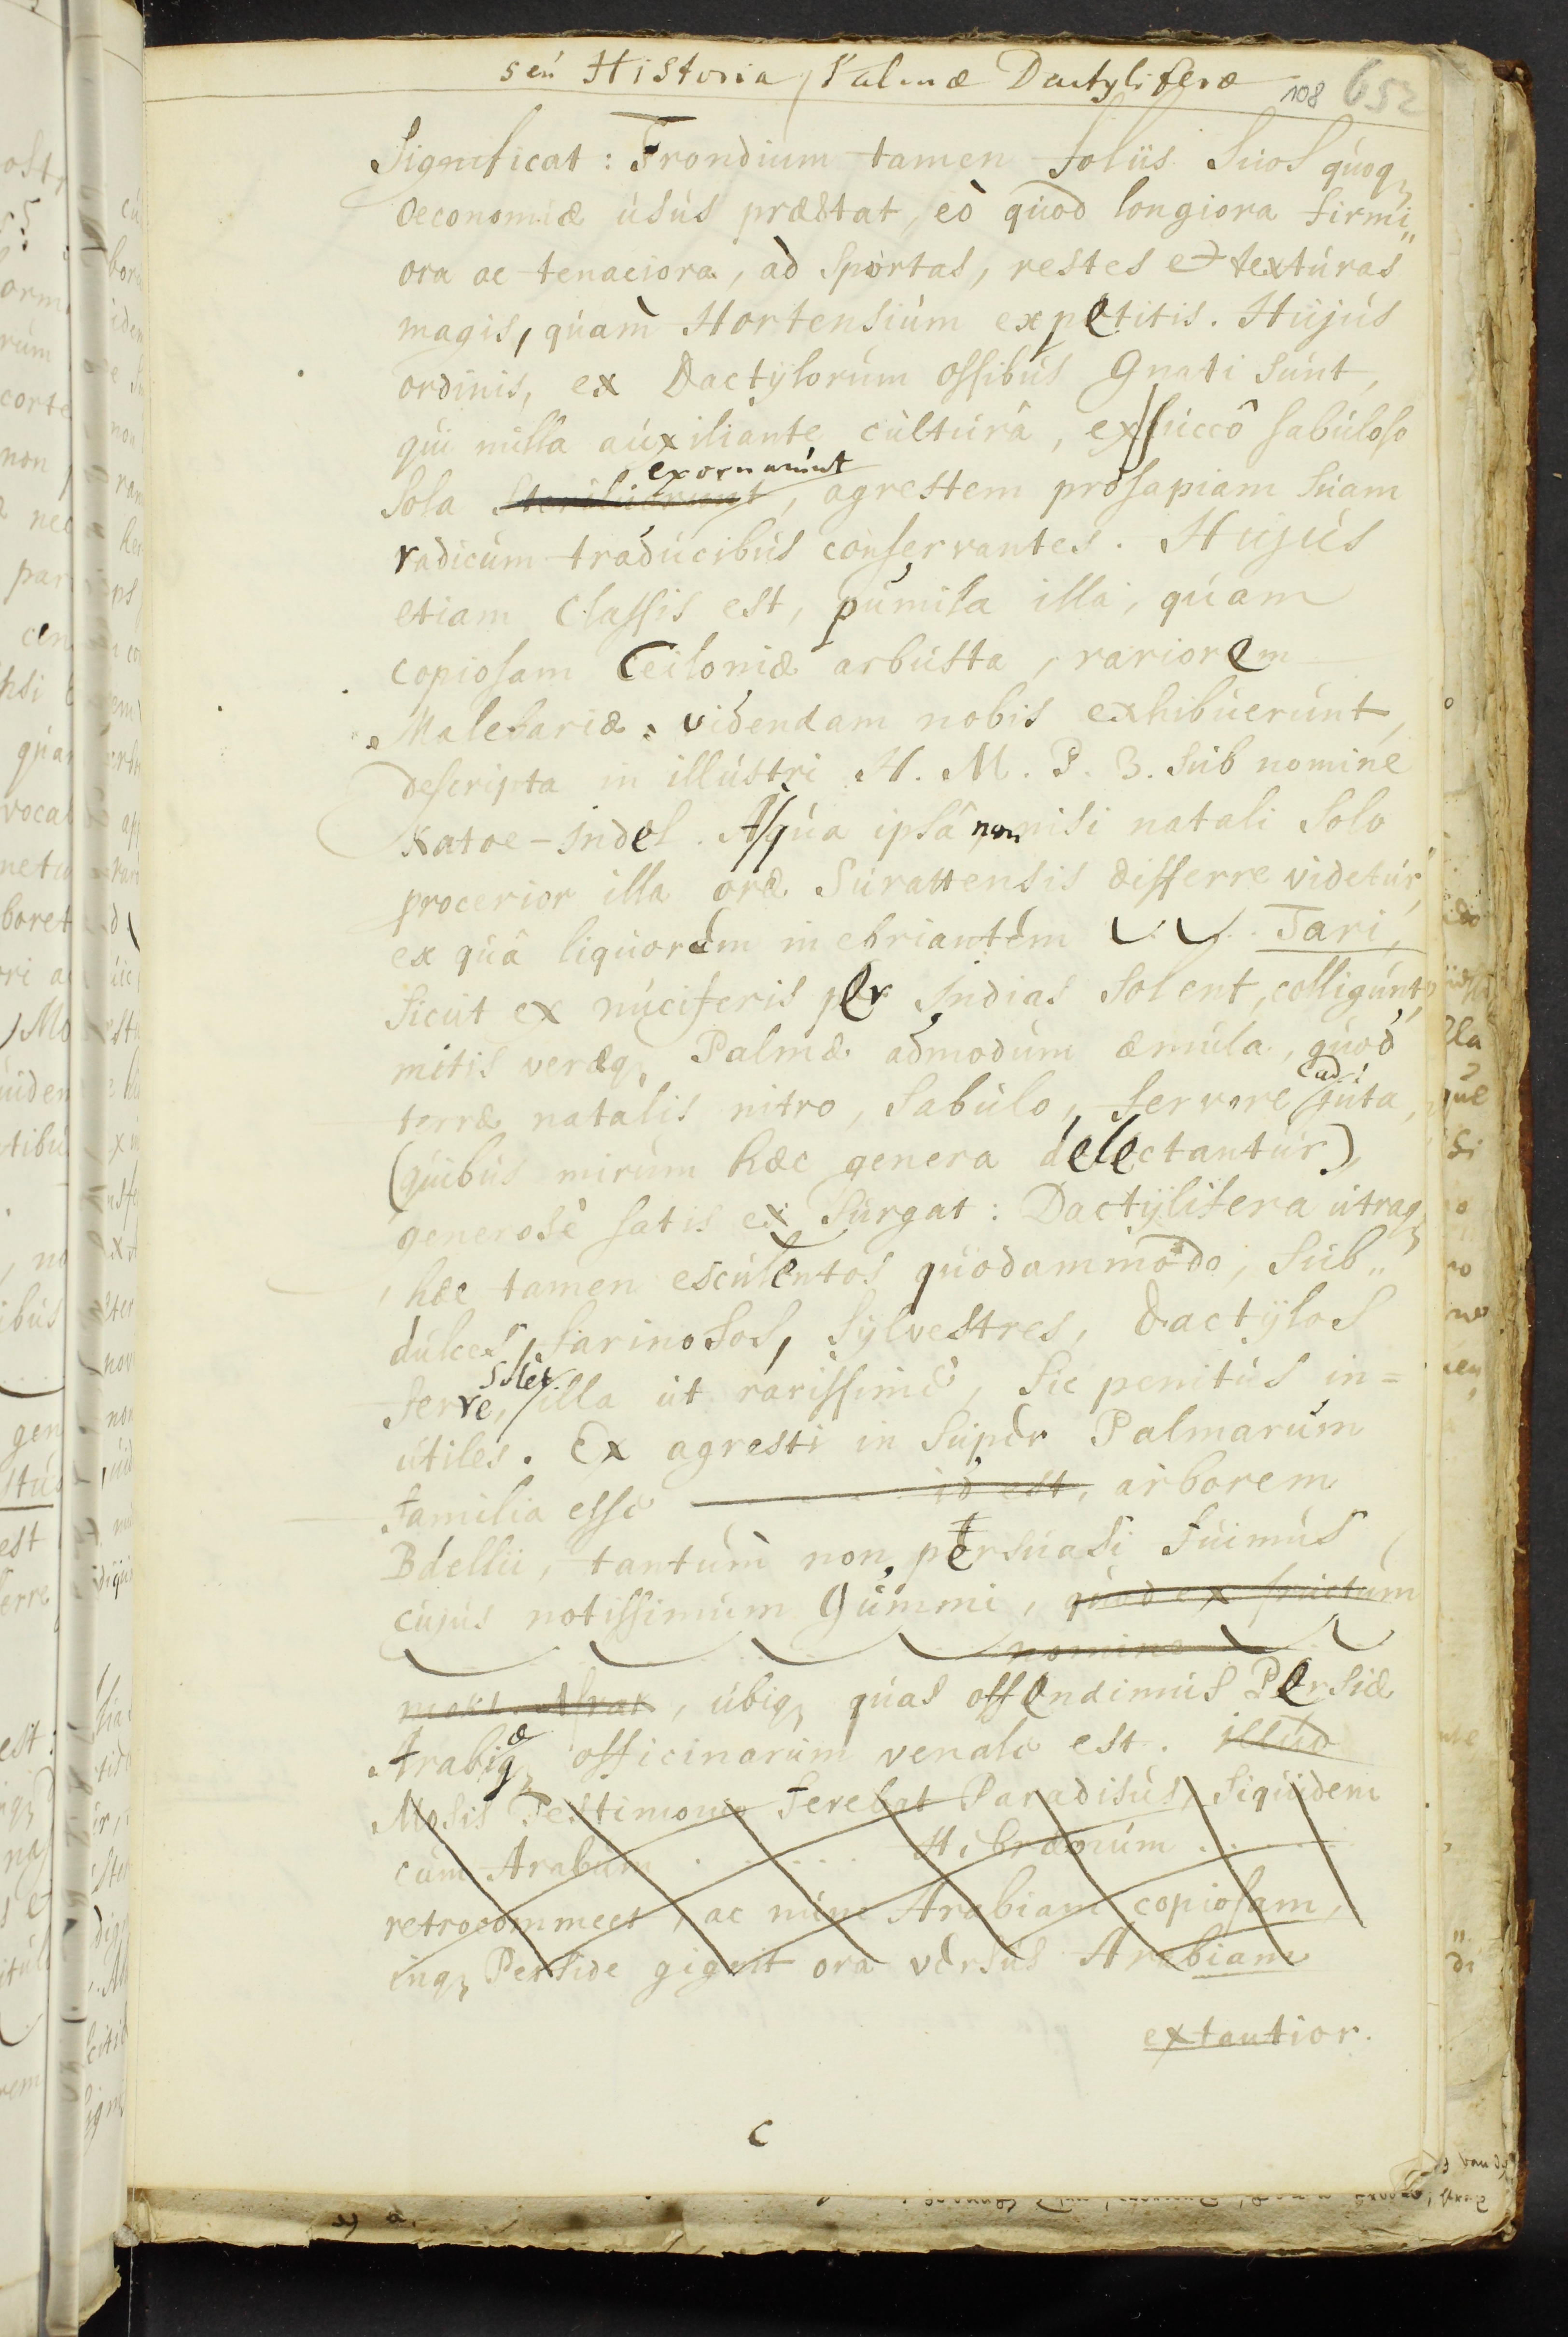 seu Historia Palmæ Dactyliferæ 108 652
Significat: Frondium tamen foliis Suos quoq
Oeconomiæ usus præstat, eò quod longiora firmi„
ora ac tenaciora, ad Sportas, restes et texturas
magis, quam Hortensium expetitis. Hujus
ordinis, ex Dactylorum ossibus Gnati sunt,
qui nulla auxiliante culturâ, exsuccô sabuloso
exornarunt
Sola, agrestem prosapiam Suam
radicum traducibus conservantes. Hujus
etiam Classis est, pumila illa, quam
copiosam Ceiloniæ arbusta, rariorem
Malebariæ videndam nobis exhibuerunt,
descripta in illustri H. M. P. 3. sub nomine
Katoe-Indel. A quâ ipsâ non nisi natali Solo
procerior illa oræ Surattensis differre videtur,
ex quâ liquorem inebriantem Tari,
Sicut ex nuciferis per Indias Solent, colligunt,
mitis veræq Palmæ admodum æmula, quod
terræ natalis nitro, Sabulo, fervore adjuta,
(quibus mirum hæc genera delectantur)
generosè satis exsurgat: Dactÿlifera utraq
hæc tamen esculentos quodammodo, Sub„
dulces, farinosos, Sÿlvestres, Dactÿlos
solet
ferre, illa ut rarissimè, Sic penitus in=
utiles. Ex agresti in Super Palmarum
familia esse id est, arborem
Bdellii, tantum non persuasi fuimus
cujus notissimum Gummi, quod ex fructum
nomine
, ubiq quas offendimus Persiæ
Arabiæq officinarum venale est. illud
Mosis Testimonio ferebat Paradisus, Siquidem
cum Arabum ..... Hebræorum .....
retrocommeet, ac nunc Arabiam copiosam,
inq Perside gignit ora versus Arabiam
extantior.
C